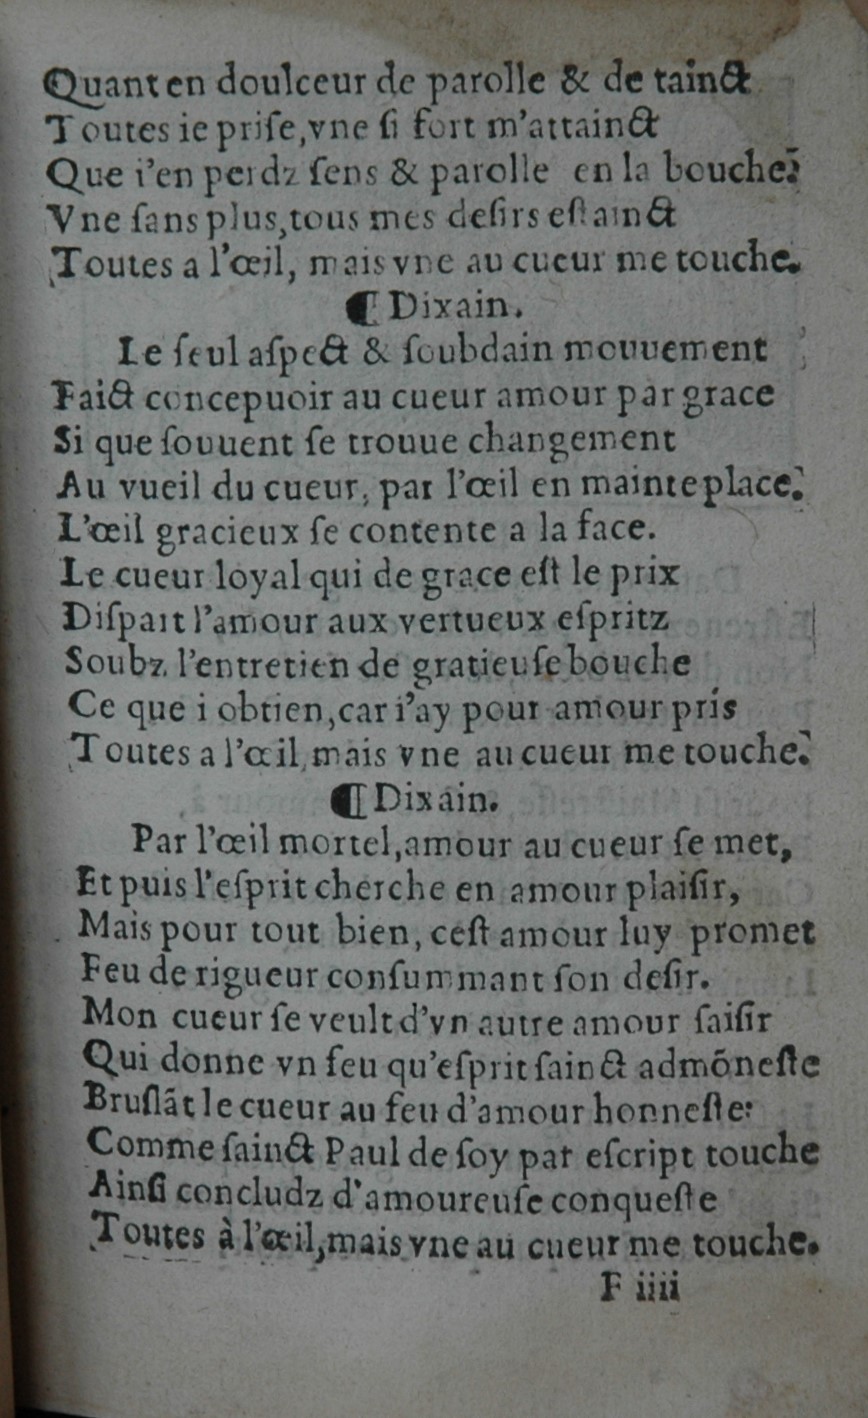 Quant en doulceur de parolle & de tainct
Toutes ie priſe, vne ſi fort m'attainct
Que i'en perdz ſens & parolle en la bouche:
Vne ſans plus, tous mes deſirs eſtainct
Toutes a l'œil, mais vne au cueur me touche.
¶ Dixain.
Le ſeul aſpect & ſoubdain mouuement
Faict concepuoir au cueur amour par grace
Si que ſouuent ſe trouue changement
Au vueil du cueur, par l'œil en mainte place:
L'œil gracieux ſe contente a la face.
Le cueur loyal qui de grace eſt le prix
Diſpart l'amour aux vertueux eſpritz
Soubz l'entretien de gratieuſe bouche
Ce que i obtien, car i'ay pour amour pris
Toutes a l'œil, mais vne au cueur me touche:
¶ Dixain.
Par l'œil mortel, amour au cueur ſe met,
Et puis l'eſprit cherche en amour plaiſir,
Mais pour tout bien, ceſt amour luy promet
Feu de rigueur conſummant ſon deſir.
Mon cueur ſe veult d'vn autre amour ſaiſir
Qui donne vn feu qu'eſprit ſainct admõneſte
Bruſlãt le cueur au feu d'amour honneſte:
Comme ſainct Paul de ſoy par eſcript touche
Ainſi concludz d'amoureuſe conqueſte
Toutes à l'œil, mais vne au cueur me touche.
F iiii